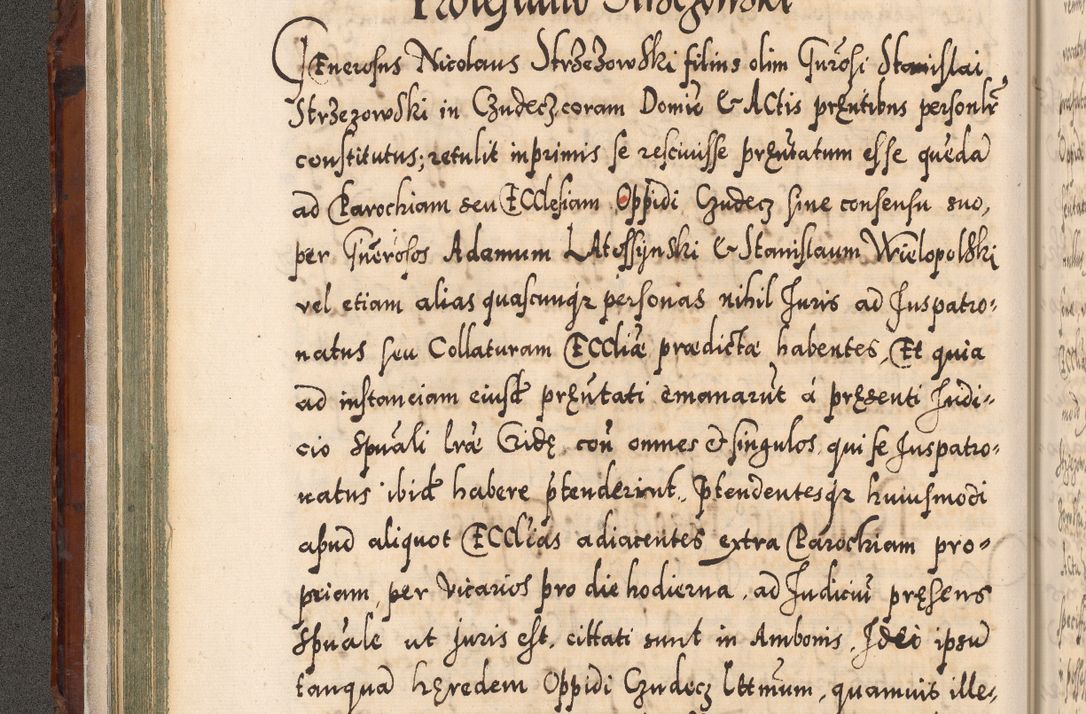 Protestatio Strzezowski
Generosus Nicolaus Strzezowski filius olim Gnrosi Stanislai
Strzezowski in Czudecz coram Domiu & Actis prȩntibus personlr
constitutus; retulit inprimis se rescivisse prȩntatum esse quedã
ad Parochiam seu Ecclesiam Oppidi Czudecz sine consensu suo,
per Gnerosos Adamum Latossynski & Stanislaum Wielopolski
vel etiam alias quascunqz personas nihil Juris ad Juspatro-
natus seu Collaturam Eccliæ prædictæ habentes, Et quia
ad instanciam eiusd prȩntati emanarũt á prȩsenti Judi-
cio Spuali lræ Cridȩ, con omnes & singulos, qui se Juspatro-
natus ibid habere ptenderint, Ptendentesqz huiusmodi
apud aliquot Ecclias adiacentes extra Parochiam pro-
priam, per vicarios pro die hodierna, ad Judiciũ prȩsens
Spuale ut juris est, cittati sunt in Ambonis, Ideo ipsũ
tanquã hȩredem Oppidi Czudecz lttmum, quamvis ille-